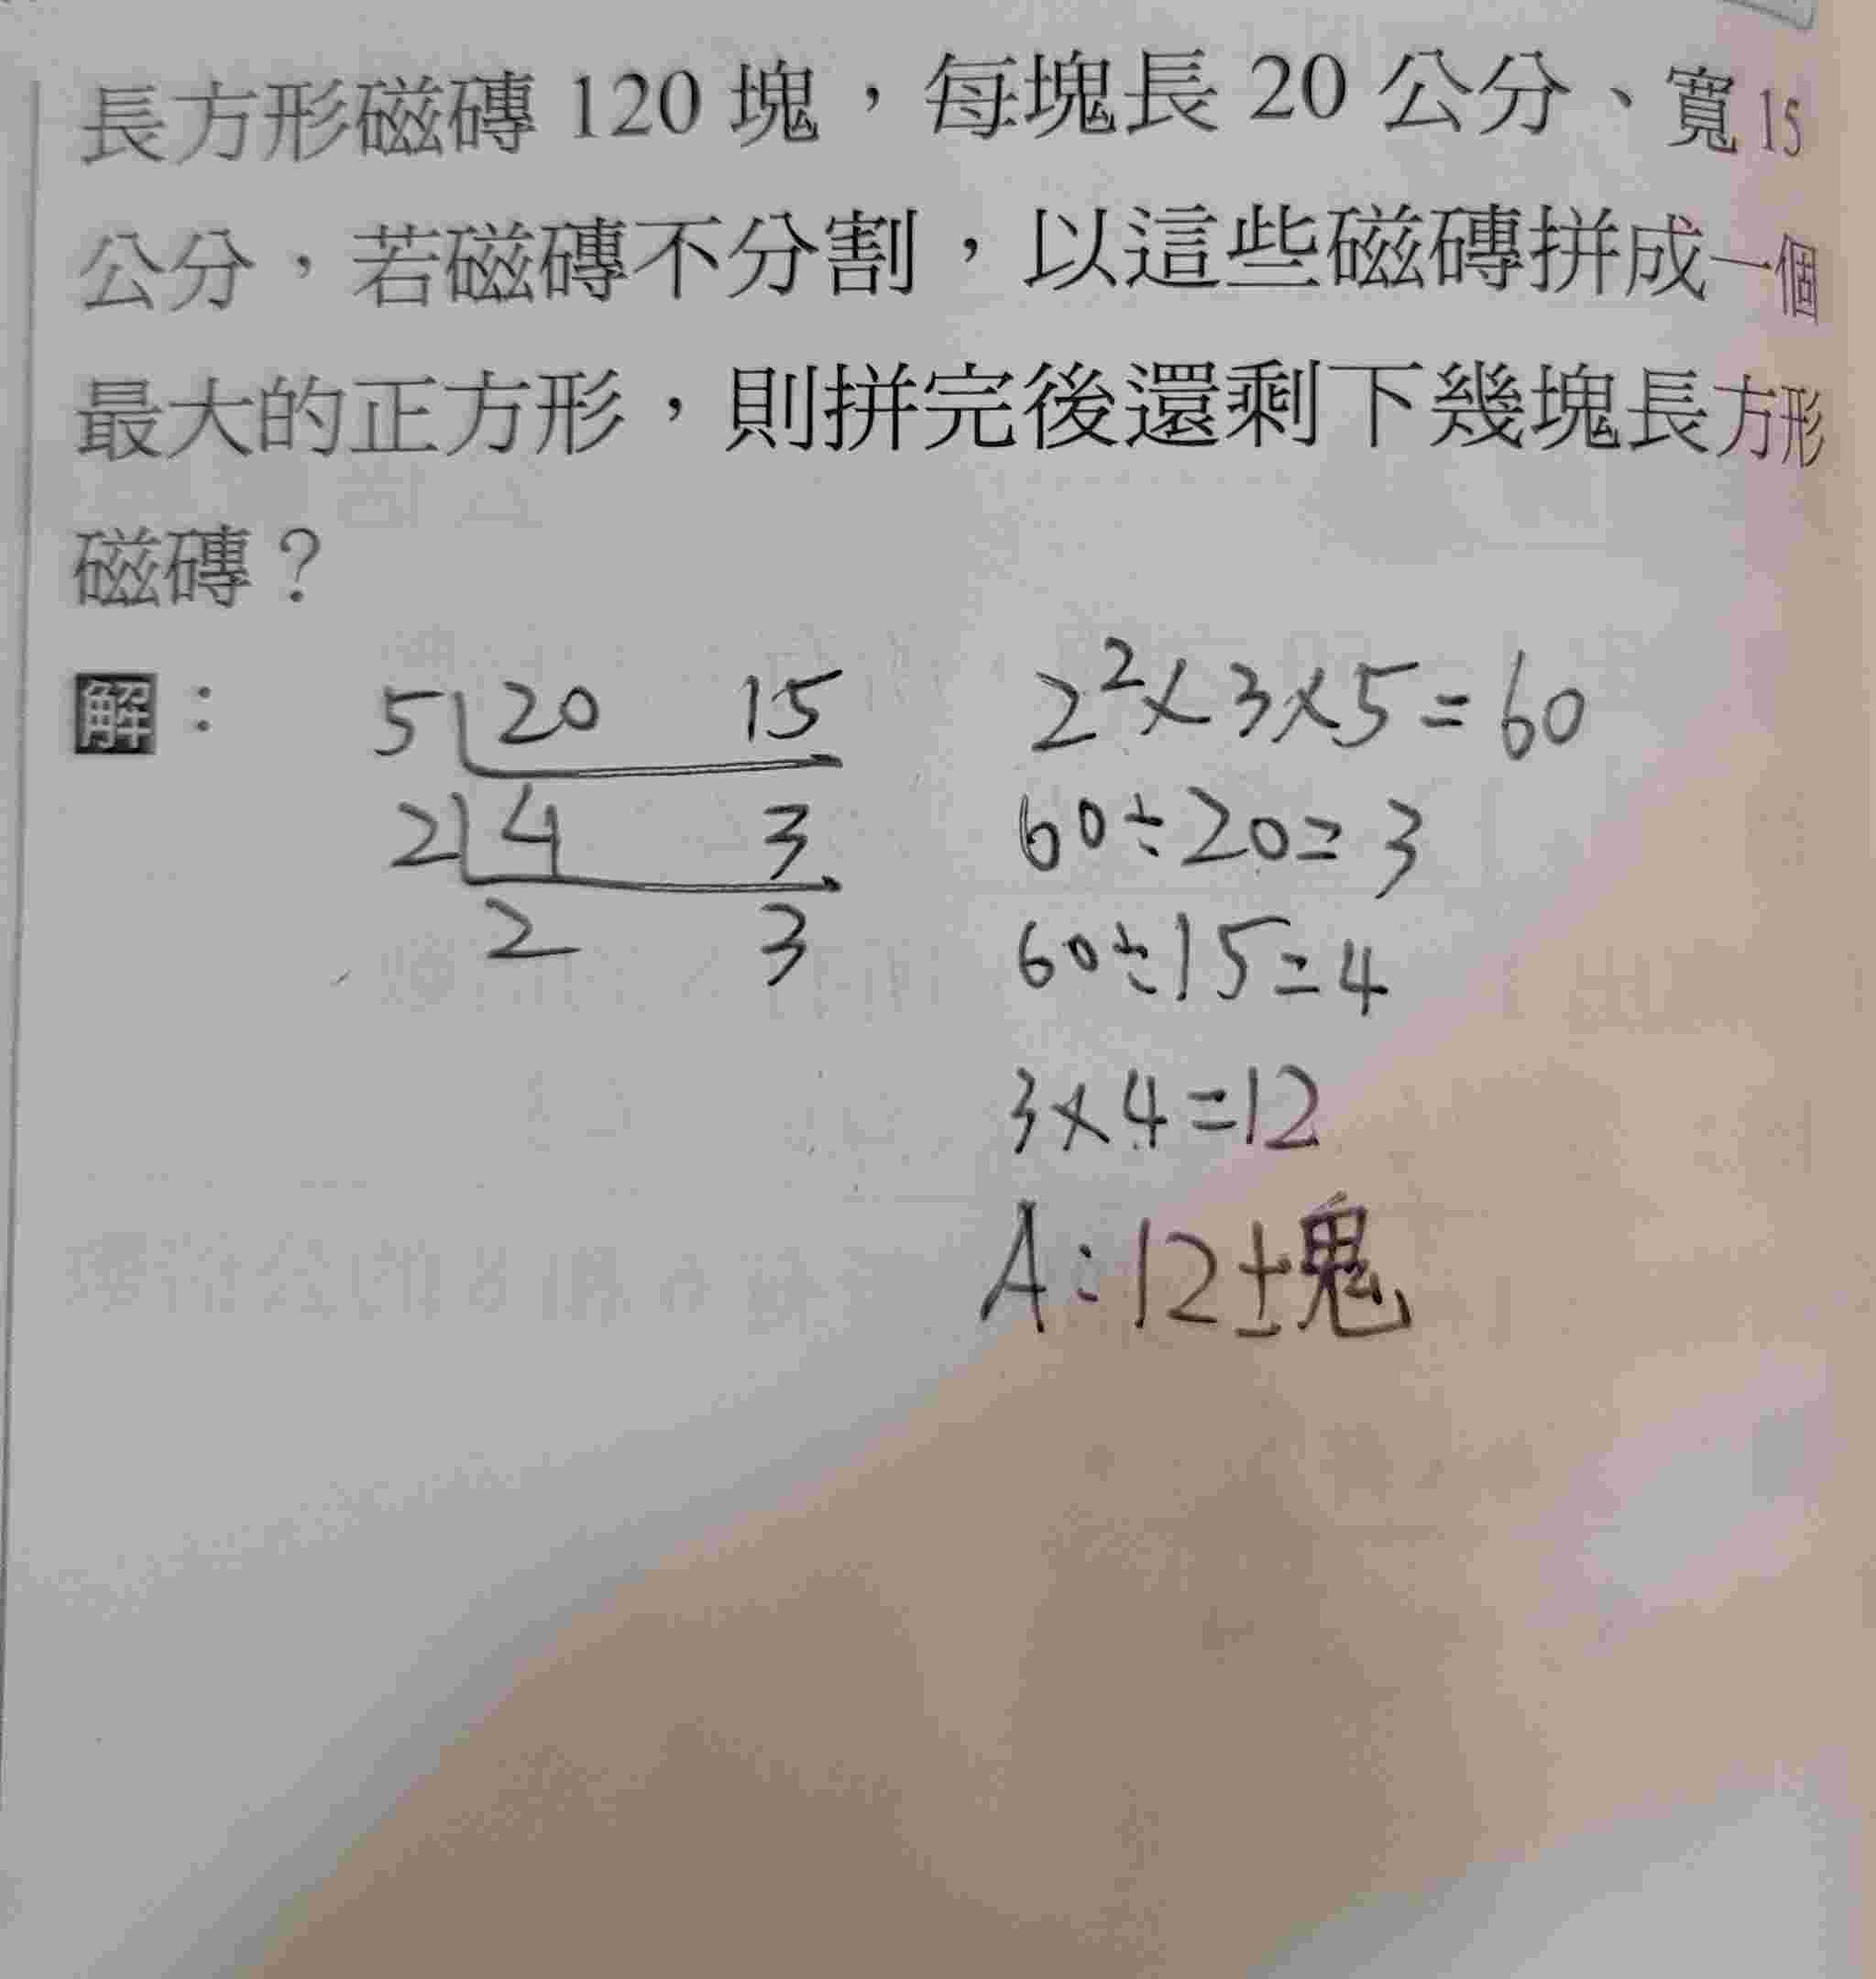 長方形磁磚 120 塊，每塊長 20 公分、寬 15
公分，若磁磚不分割，以這些磁磚拼成一個
最大的正方形，則拼完後還剩下幾塊長方形
磁磚？
解：
5 20 15
2 4 3
2 3
2²×3×5=60
60÷20=3
60÷15=4
3×4=12
A:12塊